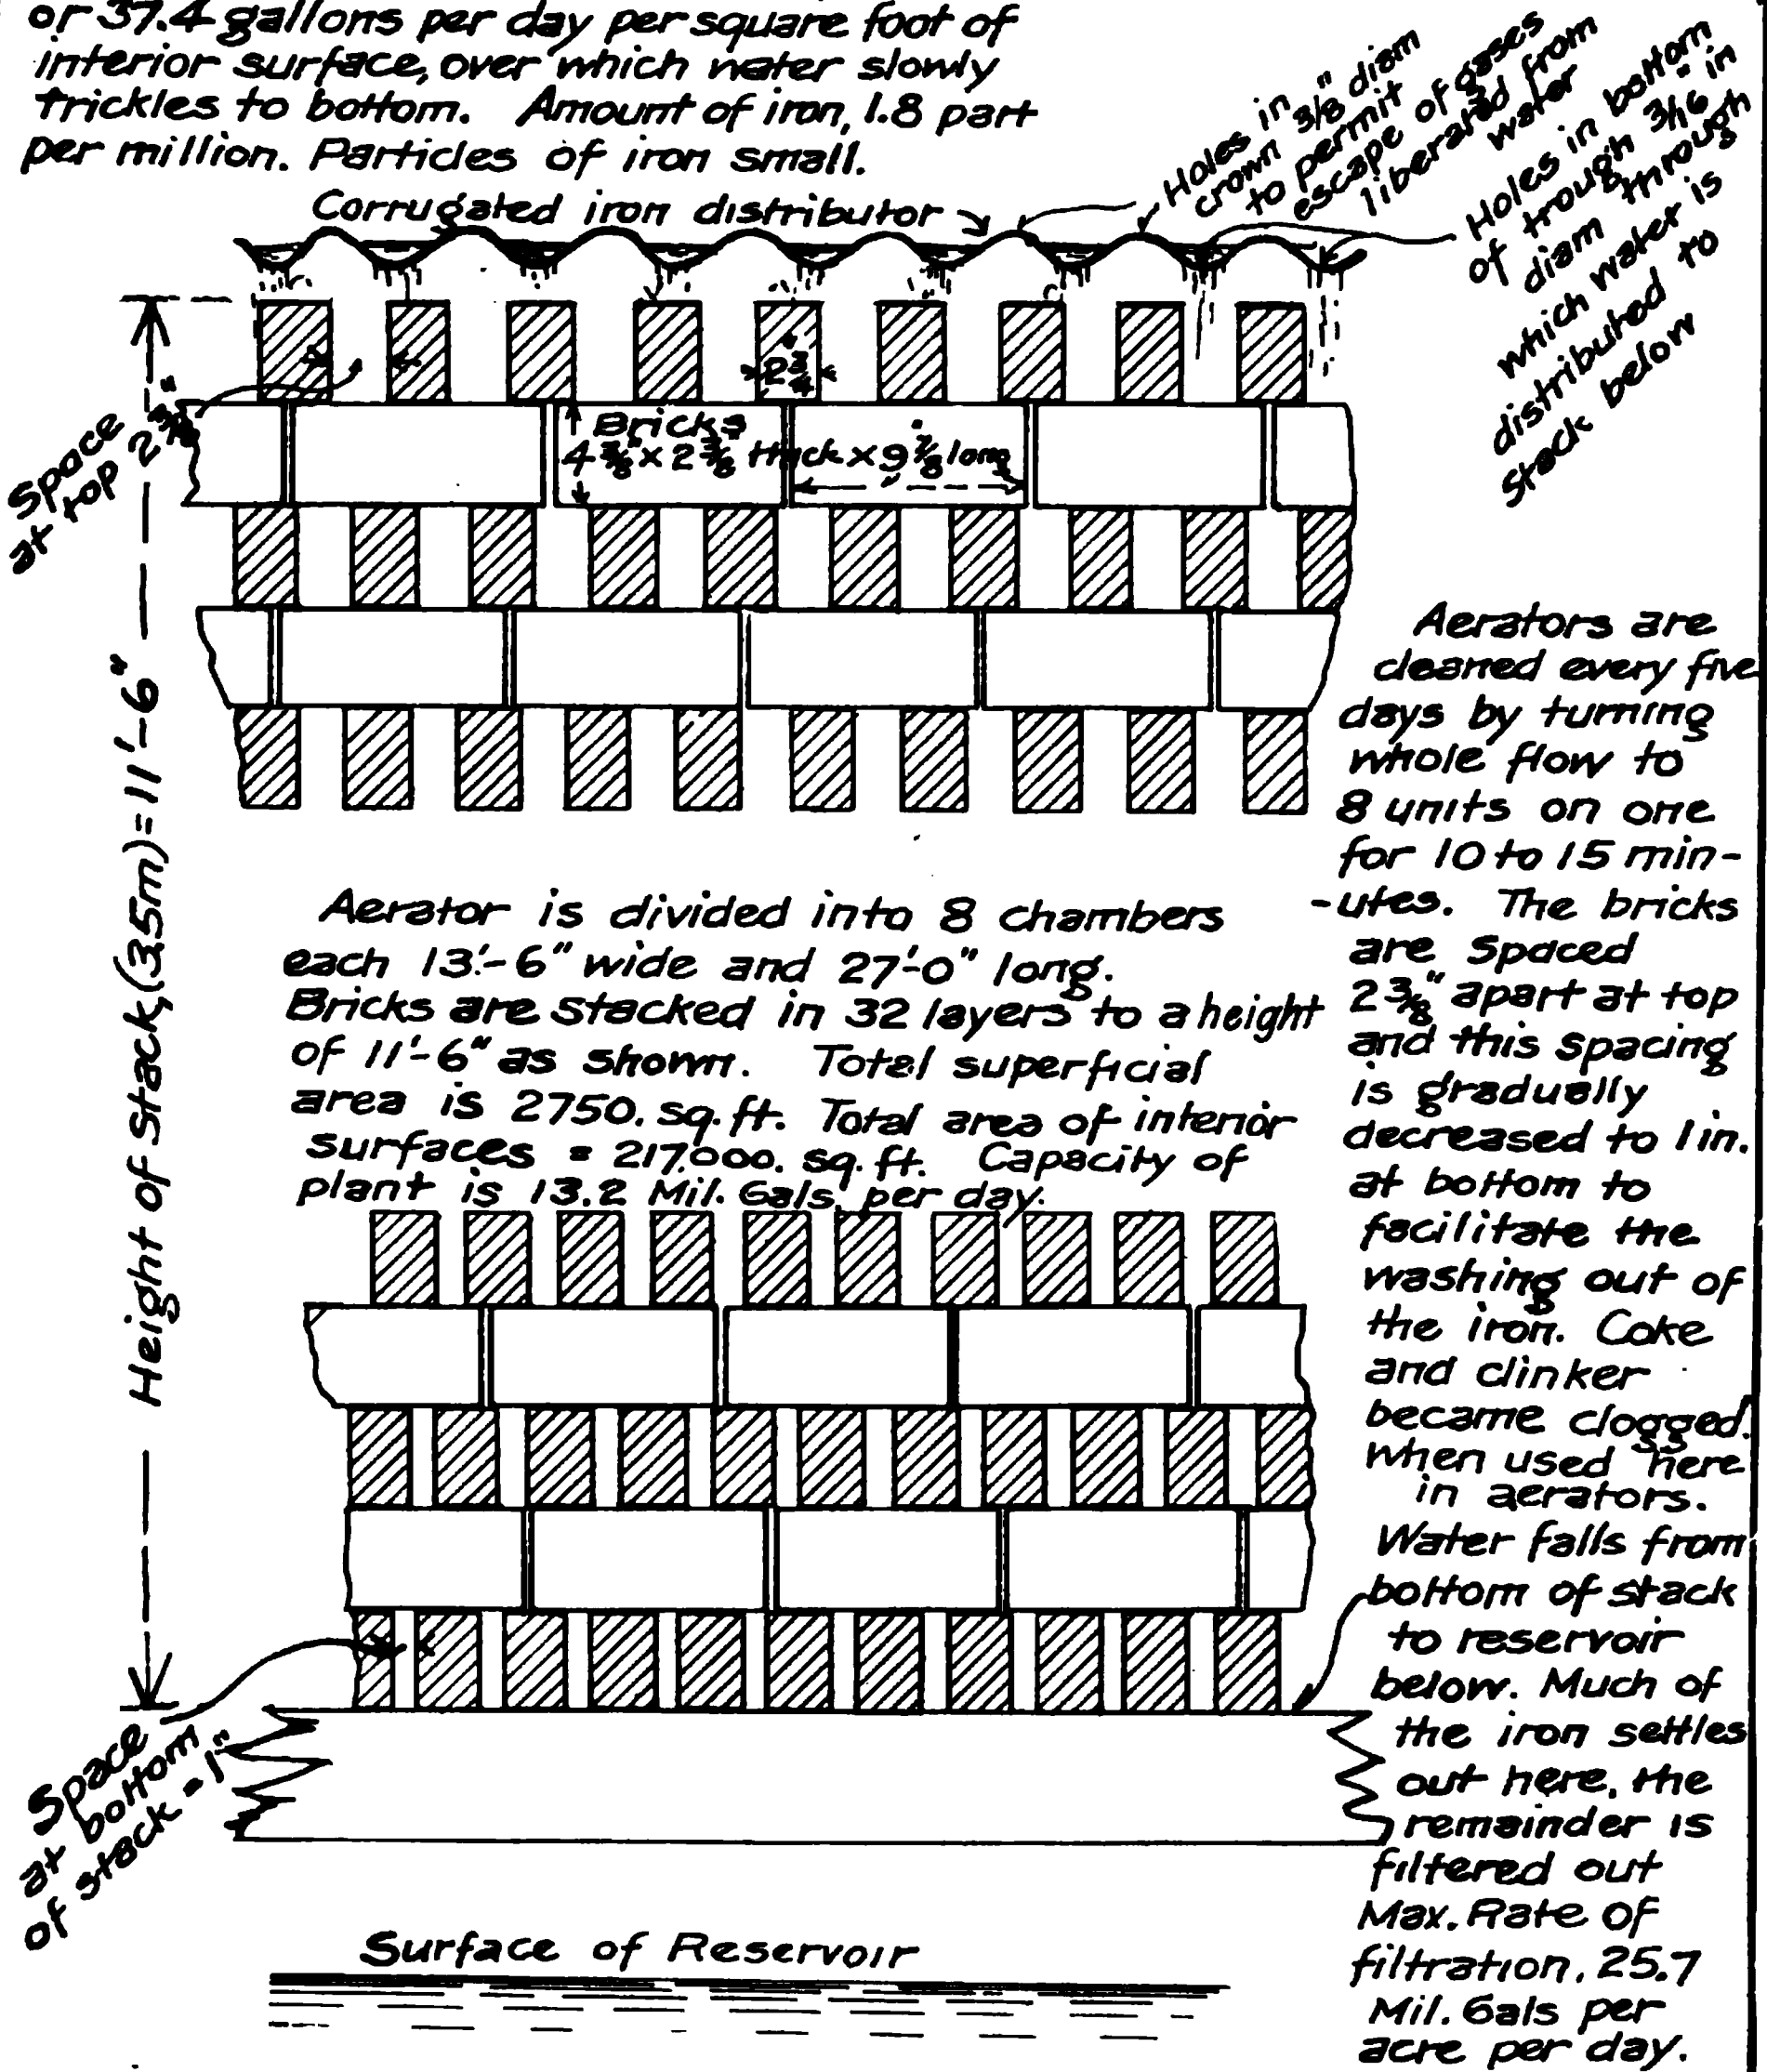 or 37.4 gallons per day per square foot of
interior surface, over which water slowly
trickles to bottom. Amount of iron, 1.8 part
per million. Particles of iron small.
Corrugated iron distributor
Holes in
crown 3/8" diam
to permit
escape of gases
liberated from
water
Holes in bottom
of trough 3/16" in
diam through
which water is
distributed to
stack below
Space
at top 2 3/8"
2 3/4"
Bricks
4 3/8" x 2 3/8" thick x 9 7/8" long
Height of stack, (3.5m) = 11'-6"
Aerator is divided into 8 chambers
each 13'-6" wide and 27'-0" long.
Bricks are stacked in 32 layers to a height
of 11'-6" as shown. Total superficial
area is 2750. sq. ft. Total area of interior
surfaces = 217.000. sq. ft. Capacity of
plant is 13.2 Mil. Gals. per day.
Aerators are
cleaned every five
days by turning
whole flow to
8 units on one
for 10 to 15 min-
-utes. The bricks
are spaced
2 3/8" apart at top
and this spacing
is gradually
decreased to 1 in.
at bottom to
facilitate the
washing out of
the iron. Coke
and clinker
became clogged.
when used here
in aerators.
Water falls from
bottom of stack
to reservoir
below. Much of
the iron settles
out here, the
remainder is
filtered out
Max. Rate of
filtration, 25.7
Mil. Gals per
acre per day.
Space
at bottom
of stack = 1"
Surface of Reservoir